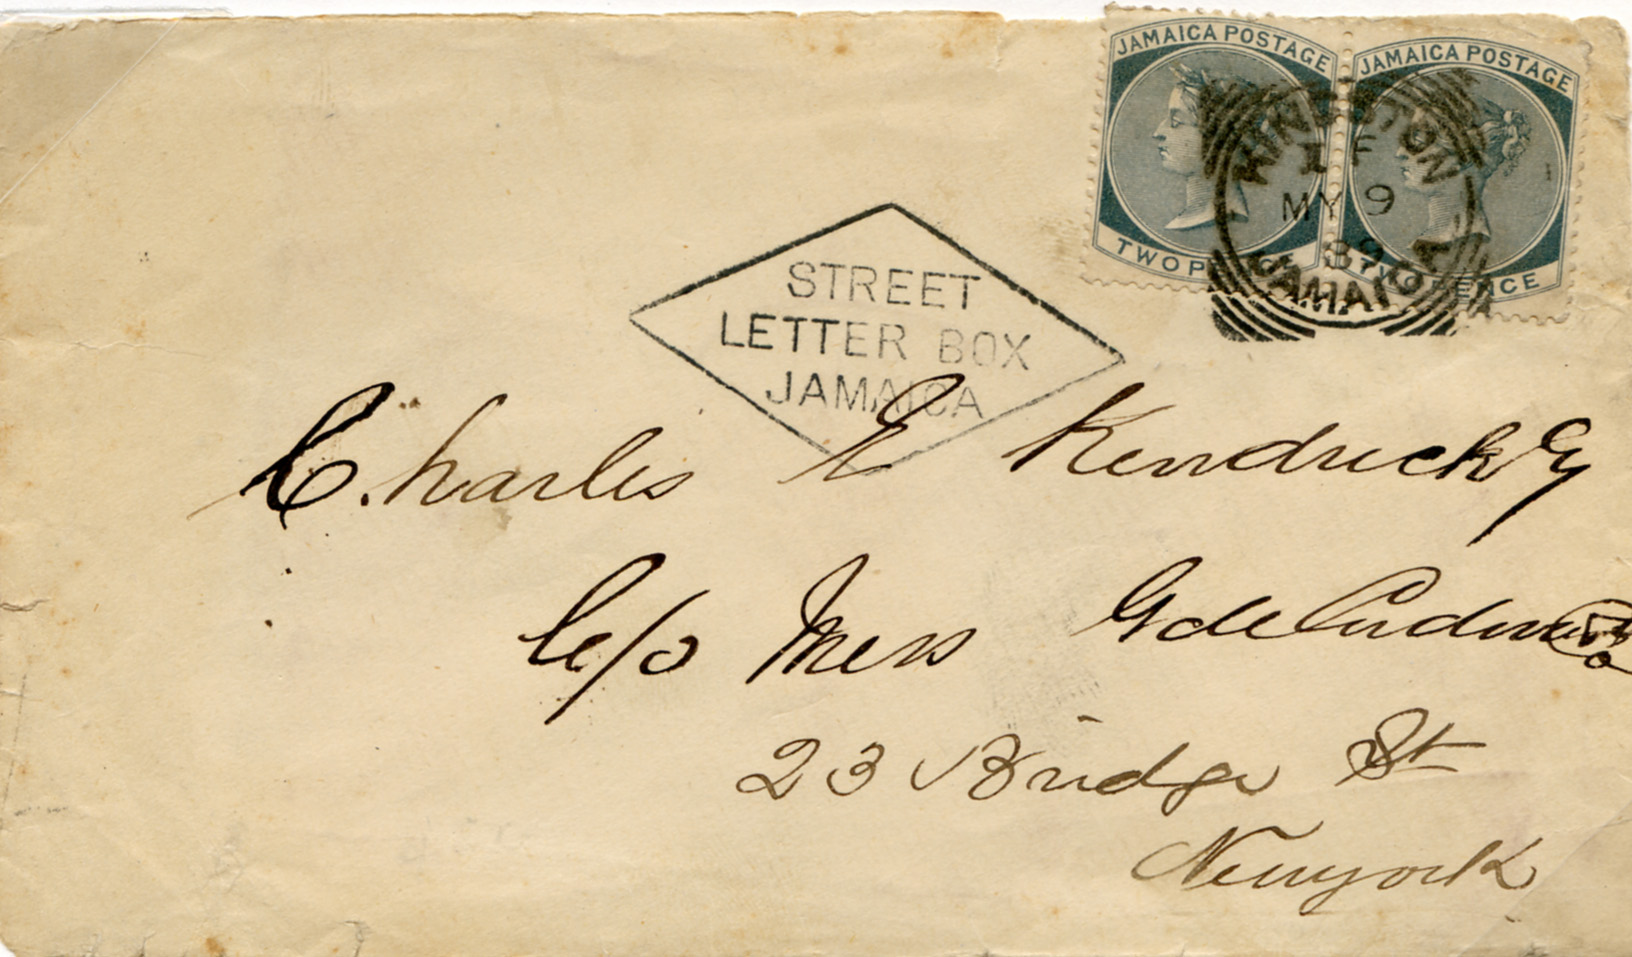 JAMAICA POSTAGE
TWO P
JAMAICA POSTAGE
TWO PENCE
KINGSTON
MY 9
89
JAMAICA
STREET
LETTER BOX
JAMAICA
Charles E Kendrick
C/o Mess G de Cordova & Co
23 Bridge St
Newyork